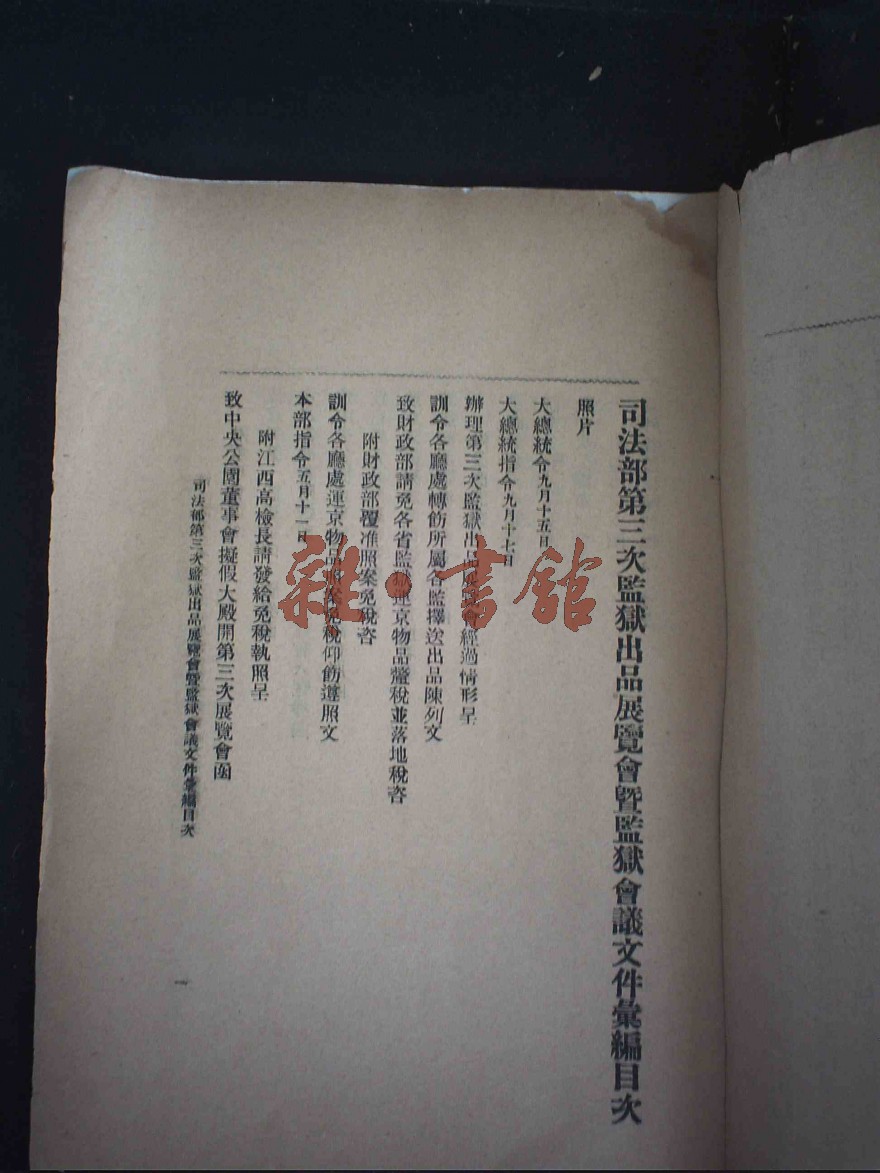 司法部第三次監獄出品展覽會暨監獄會議文件彙編目次
照片
大總統令九月十五日
大總統指令九月十七日
辦理第三次監獄出品展覽會經過情形呈
訓令各廳處轉飭所屬各監擇送出品陳列文
致財政部請免各省監獄運京物品釐稅並落地稅咨
附財政部覆准照案免稅咨
訓令各廳處運京物品照案免稅仰飭遵照文
本部指令五月十一日
附江西高檢長請發給免稅執照呈
致中央公園董事會擬假大殿開第三次展覽會函
司法部第三次監獄出品展覽會暨監獄會議文件彙編目次
一
雜·書館